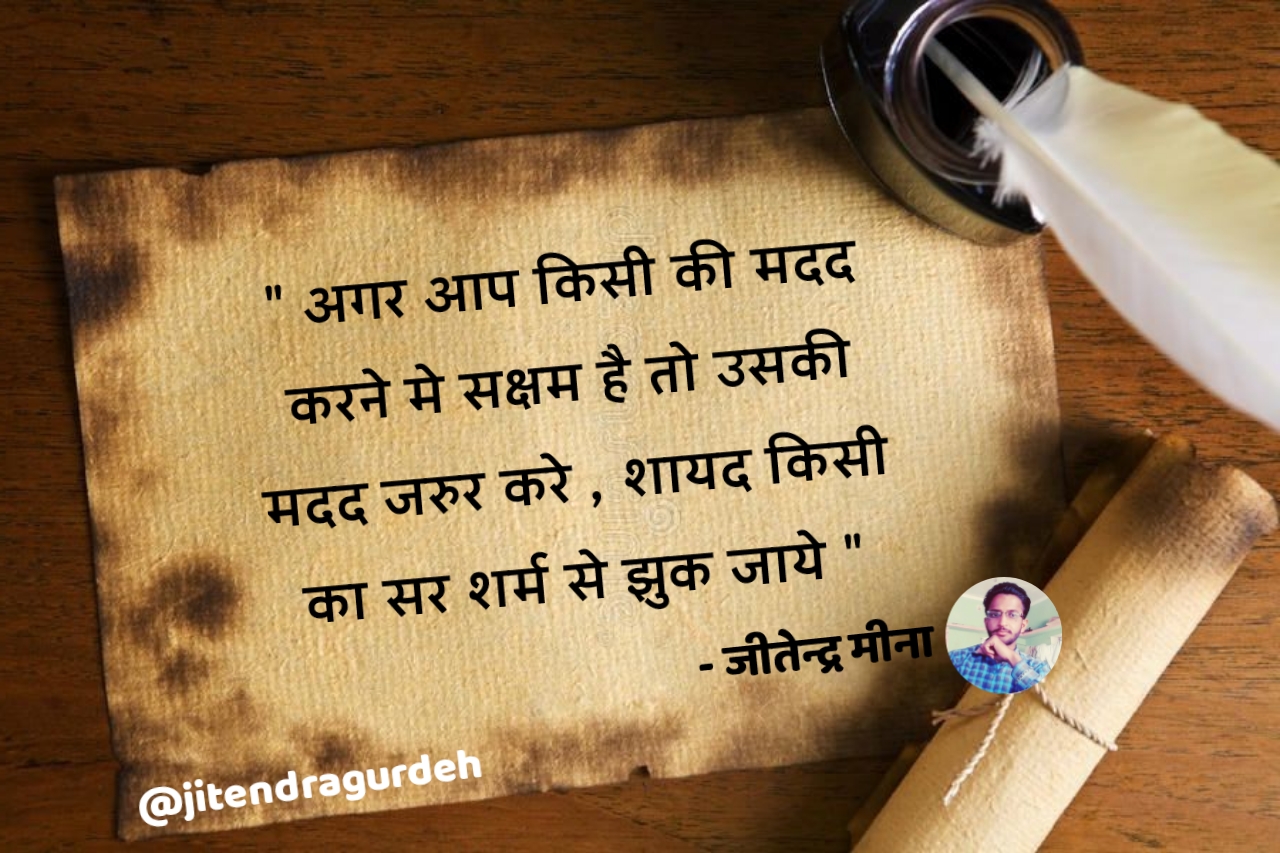 " अगर आप किसी की मदद
करने मे सक्षम है तो उसकी
मदद जरुर करे , शायद किसी
का सर शर्म से झुक जाये "
- जीतेन्द्र मीना
@jitendragurdeh